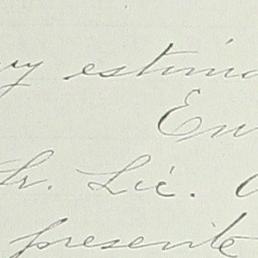 uy estima
En
Sr. Lic.
presente